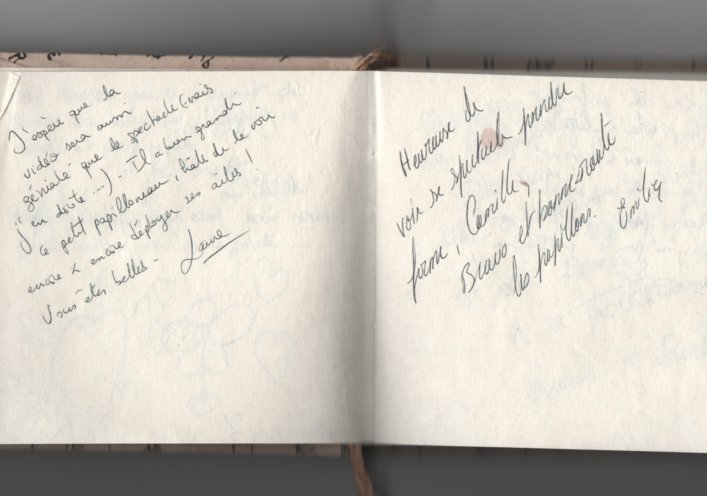 J'espère que la
vidéo sera aussi
"géniale" que le spectacle (mais
j'en doute...). Il a bien grandi
ce petit papillonneau, hâte de le voir
encore & encore déployer ses ailes !
Vous êtes belles -
Laure
Heureuse de
voir se spectacle prendre
forme, Camille.
Bravo et bonne route
les papillons. Emilie